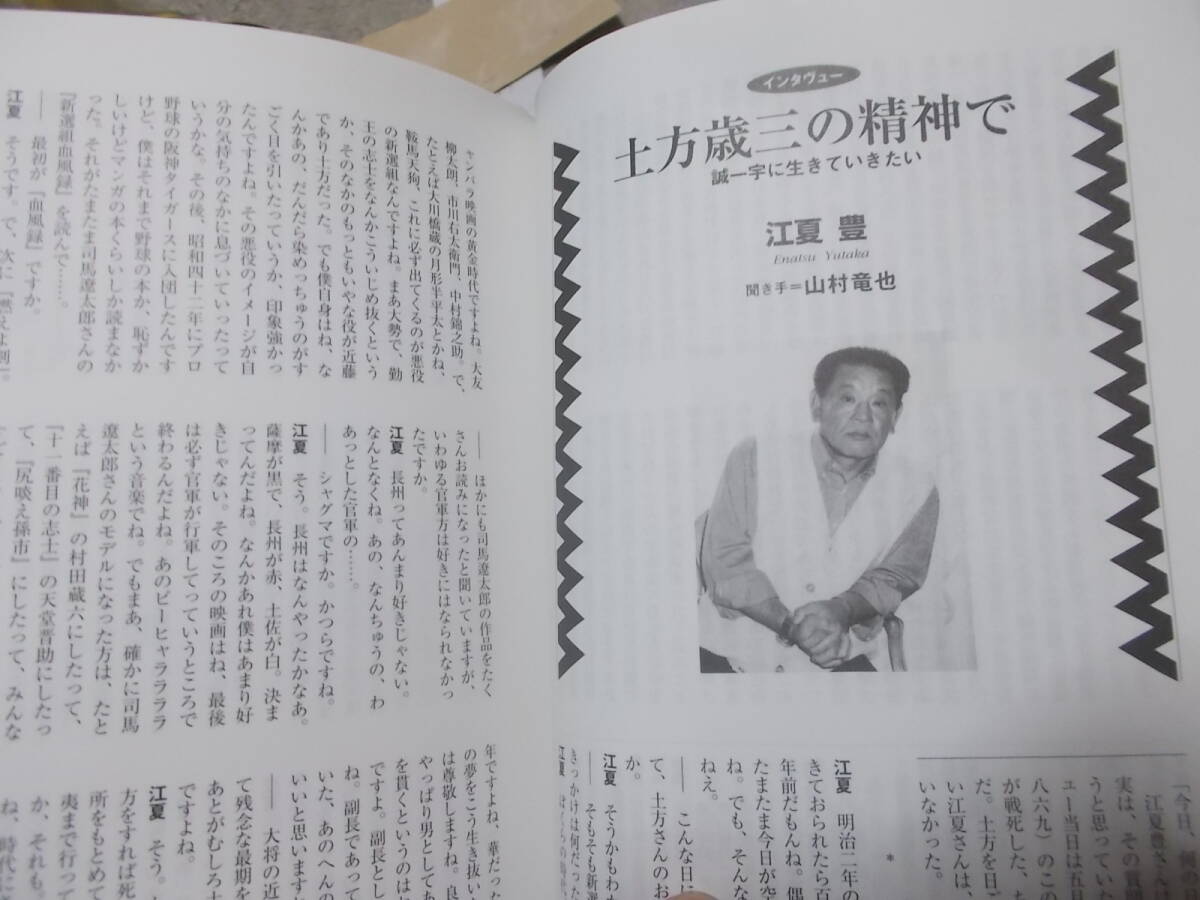 インタヴュー
土方歳三の精神で
誠一字に生きていきたい
江夏 豊
Enatsu Yutaka
聞き手=山村竜也
「今日、何の
江夏豊さんへ
実は、その賞
うと思ってい
ュー当日は五月
八六九)のこの
が戦死した、ち
だ。土方を日ご
い江夏さんは、
いなかった。
*
江夏 明治二年の
きておられたら百
年前だもんね。偶
たまたま今日が空
ね。でも、そんな
ねえ。
―― こんな日に
て、土方さんのお
か。
江夏 そうかもわ
―― そもそも新選
きっかけは何だった
チャンバラ映画の黄金時代ですよね。大友
柳太朗、市川右太衛門、中村錦之助。で、
たとえば大川橋蔵の月形半平太とかね、
鞍馬天狗、これに必ず出てくるのが悪役
の新選組なんですよね。まあ大勢で、勤
王の志士をなんかこういじめ抜くという
か、そのなかのもっともいやな役が近藤
であり土方だった。でも僕自身はね、な
んかあの、だんだら染めっちゅうのがす
ごく目を引いたっていうか、印象強かっ
たんですよね。その悪役のイメージが自
分の気持ちのなかに息づいていったって
いうかな。その後、昭和四十二年にプロ
野球の阪神タイガースに入団したんです
けど、僕はそれまで野球の本か、恥ずか
しいけどマンガの本くらいしか読まなか
った。それがたまたま司馬遼太郎さんの
『新選組血風録』を読んで……。
―― 最初が『血風録』ですか。
江夏 そうです。で、次に『燃えよ剣』。
―― ほかにも司馬遼太郎の作品をたく
さんお読みになったと聞いていますが、
いわゆる官軍方は好きにはなられなかっ
たですか。
江夏 長州ってあんまり好きじゃない。
なんとなくね。あの、なんちゅうの、わ
あっとした官軍の……。
―― シャグマですか。かつらですね。
江夏 そう。長州はなんやったかなあ。
薩摩が黒で、長州が赤、土佐が白。決ま
ってんだよね。なんかあれ僕はあまり好
きじゃない。そのころの映画はね、最後
は必ず官軍が行軍してっていうところで
終わるんだよね。あのピーヒャララララ
という音楽でね。でもまあ、確かに司馬
遼太郎さんのモデルになった方は、たと
えば『花神』の村田蔵六にしたって、
『十一番目の志士』の天堂晋助にしたっ
て、『尻啖え孫市』にしたって、みんな
年ですよね、華だった
の夢をこう生き抜い
は尊敬しますね。良
やっぱり男としてあ
を貫くというのはね
ですよ。副長とし
ね。副長であって
いた、あのへんの
いいと思います
―― 大将の近
て残念な最期を
あとがむしろ土
ですよね。
江夏 そう。
方をすれば死
所をもとめて
夷まで行って
か、それも。
ね、時代に